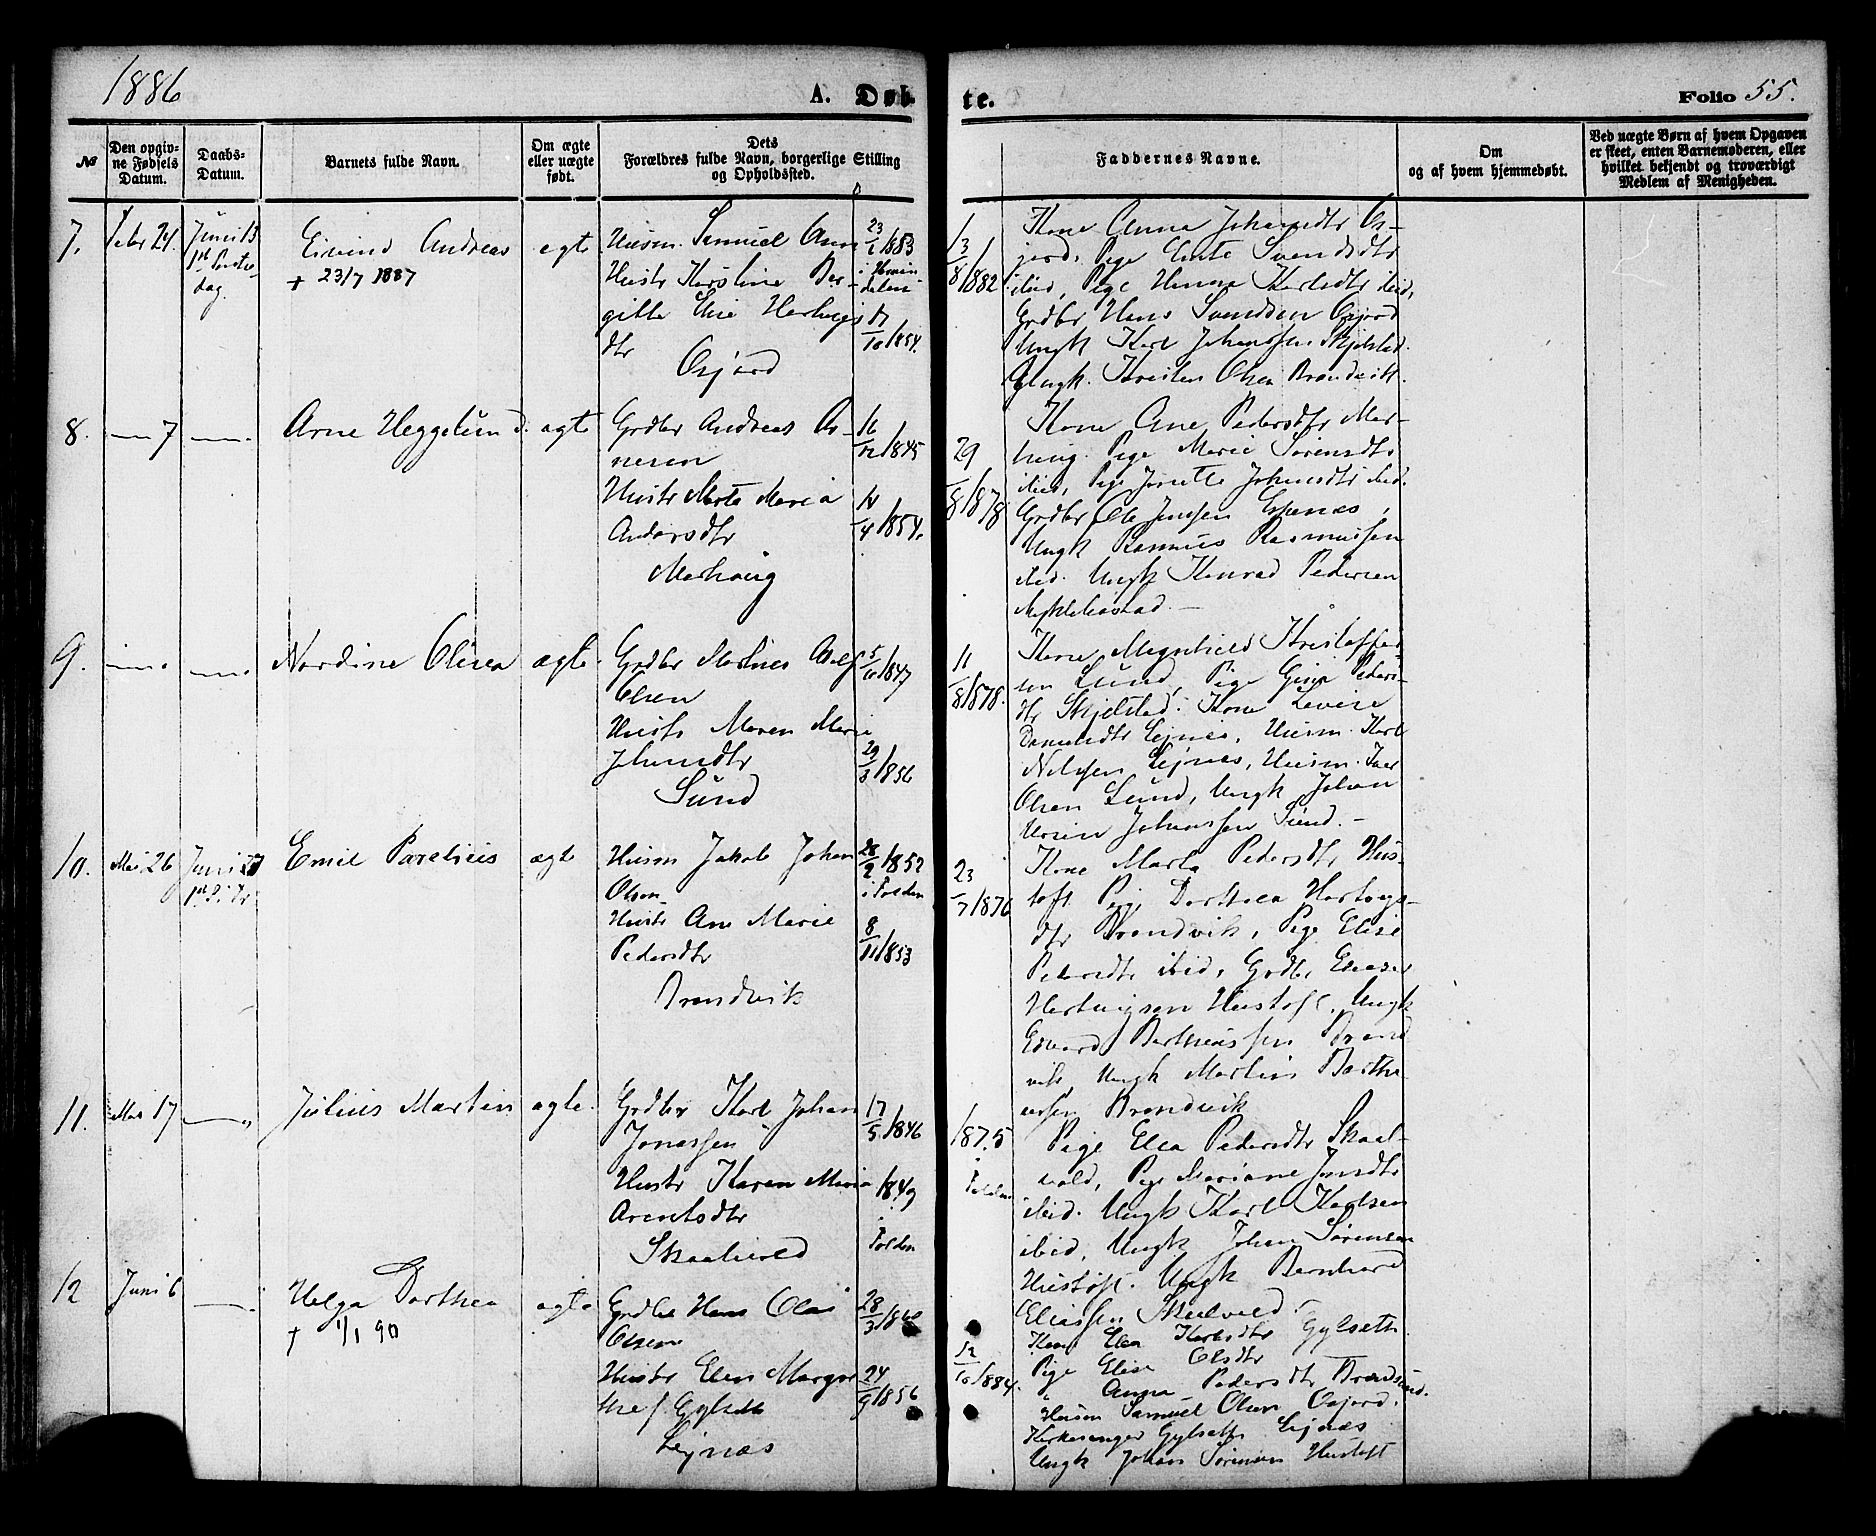 1886
A. Døb-
te.
Folio 55.
№
Den opgivne Fødsels Datum.
Daabs-Datum.
Barnets fulde Navn.
Om ægte eller uægte født.
Dets Forældres fulde Navn, borgerlige Stilling og Opholdssted.
Faddernes Navne.
Om og af hvem hjemmedøbt.
Ved uægte Børn af hvem Opgaven er skeet, enten Barnemoderen, eller hvilket bekjendt og troværdigt Medlem af Menigheden.
7.
Febr 24.
Juni 13
dag.
Eivind Andreas
+ 23/7 1887
ægte
Husm. Samuel
Hustr Karoline Ber-
gitte Hartvigs
dtr
Osjord
23/2 1853
17/10 1854.
13/8 1882
Kone Anna Johansdtr Os-
jord, Pige Svendsdtr
ibid, Pige Hanna Karlsdtr ibid,
Grdbr Hans Svendsen Osjord
Ungk Karl Johanssen Skjelstad.
Ungk. Kristen Olsen Brændvik.
8.
— 7
—
Arne Heggelund.
ægte
Grdbr Andreas Ar-
nesen
Hustr Marta Maria
Andersdtr
Marhaug
16/12 1845
14/4 1854.
29/8 1878
Kone Ane Pedersdtr Mar-
haug. Pige Marie Sørensdtr
ibid, Pige Jonette Johansdtr ibid.
Grdbr Ole Jensen Espenes,
Ungk Rasmus Rasmussen
ibid. Ungk Konrad Pedersen
Myklebostad. —
9.
—
—
Nordine Olisea
ægte.
Grdbr
Olsen
Hustr Maren Marie
Johansdtr
Sund
5/10 1847
29/3 1856
11/8 1878.
Kone Magnhild Kristoffer
sen Sund, Pige Gina Peders-
dtr Skjelstad. Kone Levise
Leinæs, Husm. Karl
Nilssen Leinæs, Husm. Iver
Olsen Sund, Ungk Johan
Johanssen Sund. —
10.
Mai 26
Juni 27
Emil Parelius
ægte
Husm Jakob Johan
Olsen
Hustr Ane Marie
Pedersdtr
Brændvik
28/2 1852
i Folden
8/11 1853
23/7 1876
Kone Marta Pedersdtr Hus-
toft Pige Dorthea Hartvigs-
dtr Brændvik, Pige Elise
Pedersdtr ibid, Grdbr Eliaser
Hartvigsen Hustoft. Ungk
Edvard Bertheussen Brænd
vik, Ungk Martin Berthe-
ussen Brændvik
11.
Mai 17
—
Julius Martin
ægte.
Grdbr Karl Johan
Jonassen
Hustr Karen Maria
Arentsdtr
Skaalvold
17/5 1846
1849
i Folden
1875
i Folden
Pige Elea Pedersdtr Skaal-
vold, Pige Mariane Jonsdtr
ibid. Ungk Karl Karlsen
ibid, Ungk Johan Sørensen
Hustoft. Ungk Bernhard
Eliassen Skaalvold.
12
Juni 6
—
Helga Dorthea
+ 1/1 90
ægte
Grdbr Hans Olai
Olsen
Hustr Elen Margre
the f. Gylseth
Leinæs
28/3 1860
24/9 1856
12/10 1884.
Kone Elen Karlsdtr Gylseth
Pige Elise Olsdtr
" Anna Pedersdtr Brændsund.
Husm Samuel Olsen Osjord.
Kirkesanger Gylseth Leinæs
Ungk Johan Sørensen Hustoft